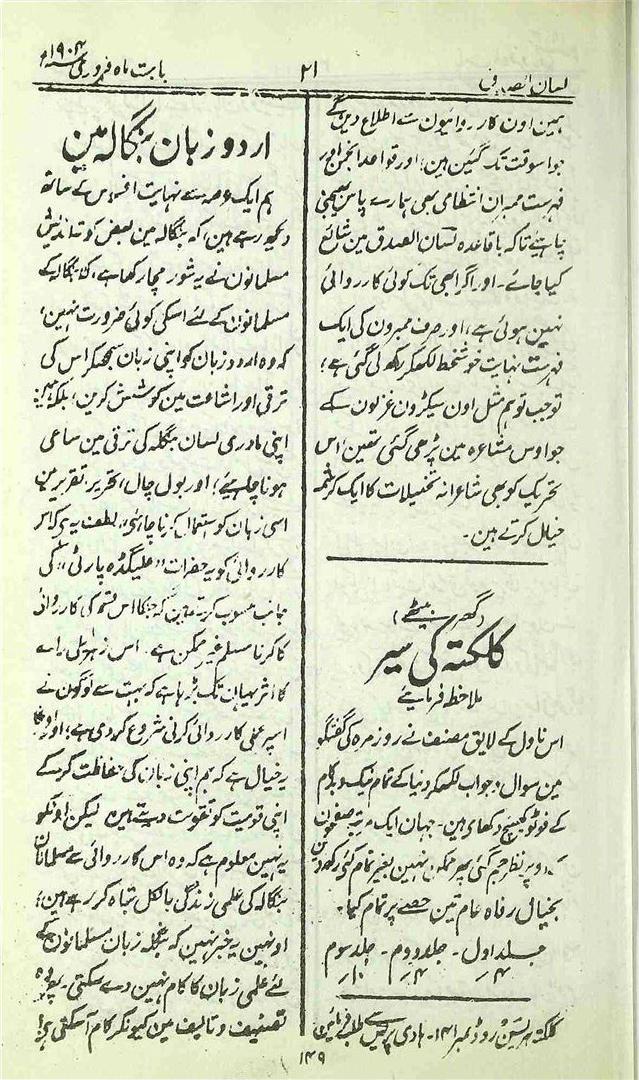 لسان الصدق
۲۱
بابت ماہ فروری ۱۹۰۴ء
ہمین اون کارروائیون سے اطلاع دین گے
جو اسوقت تک کی گئین ہین، اور قواعد انجمن اور
فہرست ممبران انتظامی بھی ہمارے پاس بھیجنی
چاہئے تاکہ باقاعدہ لسان الصدق مین شائع
کیا جائے۔ اور اگر ابھی تک کوئی کارروائی
نہین ہوئی ہے، اور صرف ممبرون کی ایک
فہرست نہایت خوشخط لکھکر رکھ لی گئی ہے؛
تو جب تو ہم مثل اون سیکڑون غزلون کے
جو اوس مشاعرہ مین پڑھی گئی تھین اس
تحریک کو بھی شاعرانہ تخیلات کا ایک کرشمہ
خیال کرتے ہین۔
(گھر بیٹھے)
کلکتہ کی سیر
ملاحظہ فرمایئے
اس ناول کے لایق مصنف نے روزمرہ کی گفتگو
مین سوال و جواب لکھکر دنیا کے تمام نیک و بدکام
کے فوٹو کھینچ دکھائی ہین۔ جہان ایک مرتبہ صفحون
پر نظر جم گئی پھر ممکن نہین بغیر تمام کئی رکھدین
بخیال رفاہ عام تین حصے پر تمام کیا۔
جلد اول۔ جلد دوم۔ جلد سوم
۴؍ ۴؍ ۱۰؍
کلکتہ ہریسن روڈ نمبر ۱۴۱۔ ہادی پریس سے طلب فرمائین
اردو زبان بنگالہ مین
ہم ایک عرصہ سے نہایت افسوس کے ساتھ
دیکھ رہے ہین، کہ بنگالہ مین بعض کوتہ اندیش
مسلمانون نے یہ شور مچا رکھا ہے، کہ بنگالہ کے
مسلمانون کے لئے اسکی کوئی ضرورت نہین،
کہ وہ اردو زبان کو اپنی زبان سمجھکر اس کی
ترقی اور اشاعت مین کوشش کرین، بلکہ ہمین
اپنی مادری لسان بنگلہ کی ترقی مین ساعی
ہونا چاہیے؛ اور بول چال، تحریر، تقریر مین
اسی زبان کو استعمال کرنا چاہئی، لطف یہ ہی کہ اس
کارروائی کو یہ حضرات "علیگڈہ پارٹی" کی
جانب منسوب کرتے ہین کہ جنکا اس قسم کی کارروائی
کا کرنا مسلم غیر ممکن ہے۔ اس زہریلی راے
کا اثر یہان تک بڑہا ہے کہ بہت سے لوگون نے
اسپر عملی کارروائی کرنی شروع کردی ہے؛ اور اونکا
یہ خیال ہے کہ ہم اپنی زبان کی حفاظت کرکے
اپنی قومیت کو تقویت دیتے ہین۔ لیکن اونکو
یہ نہین معلوم ہے کہ وہ اس کارروائی سے مسلمانان
بنگالہ کی علمی زندگی بالکل تباہ کر رہے ہین؛
اونہین یہ خبر نہین کہ بنگلہ زبان مسلمانون کے
لئے علمی زبان کا کام نہین دے سکتی۔ پھر وہ
تصنیف و تالیف مین کیونکر کام آسکتی ہی!
۱۴۹